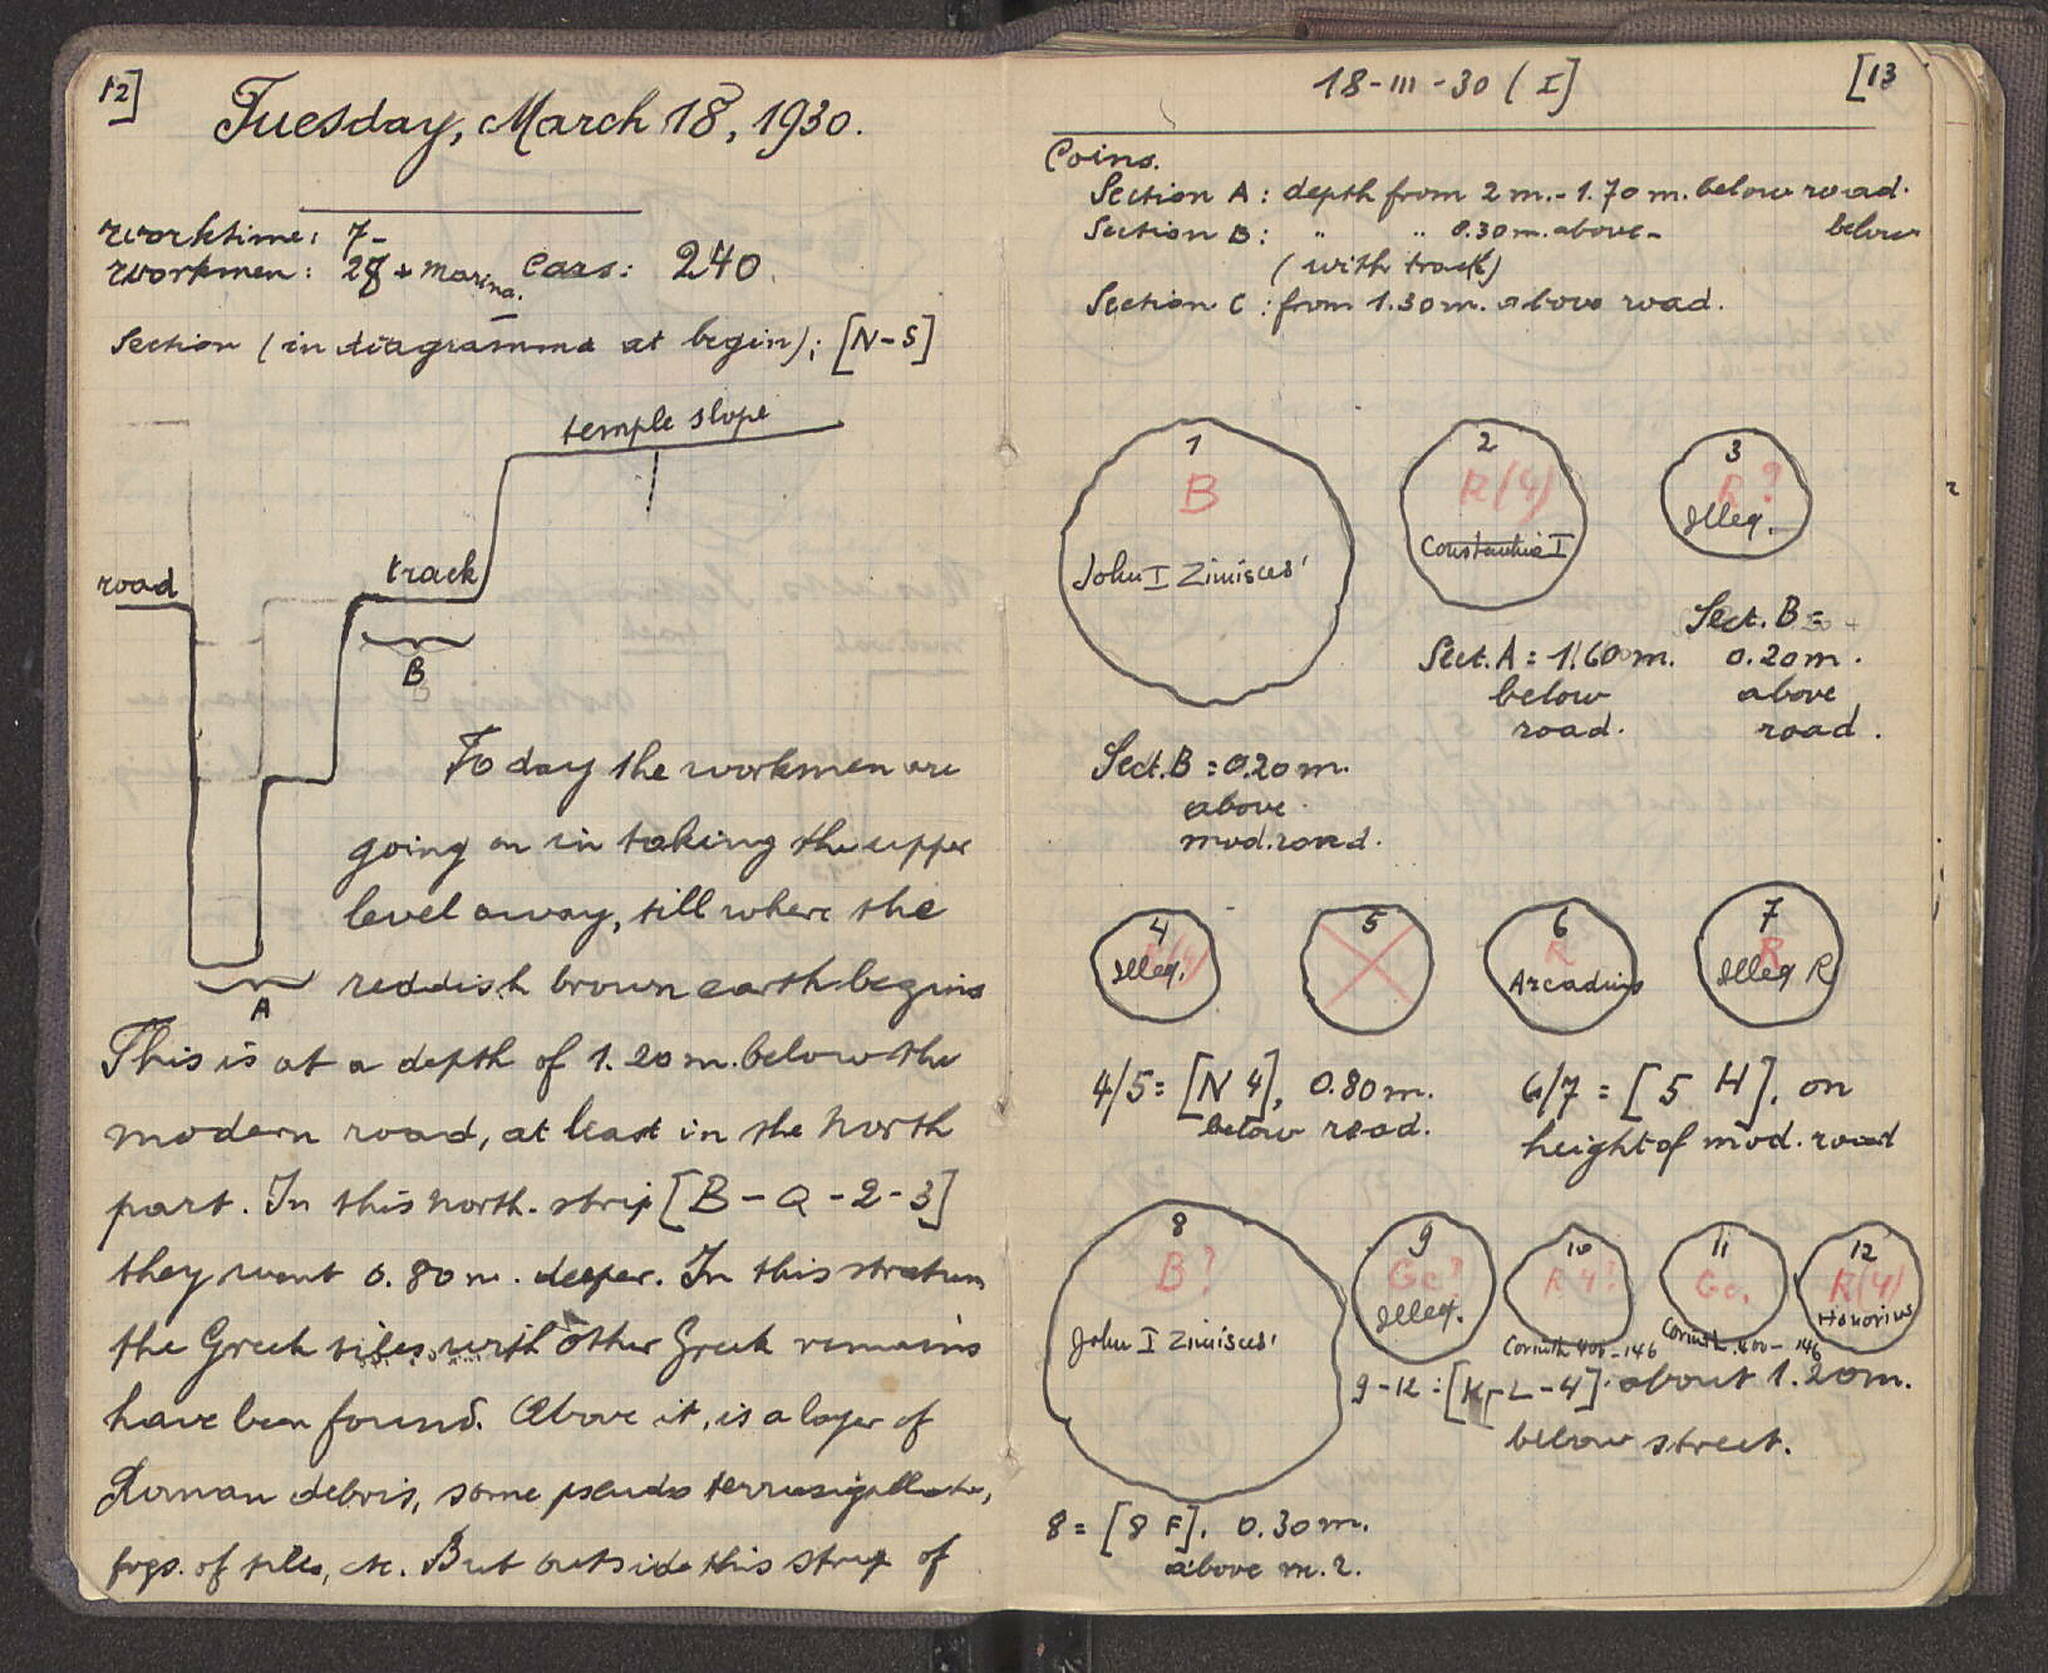 12]
Tuesday, March 18, 1930.
worktime: 7-
workmen: 28 + Marina. Cars: 240.
Section (in diagramma at begin); [N-S]
temple slope
road
track
B
A
Today the workmen are
going on in taking the upper
level away, till where the
reddish brown earth begins
This is at a depth of 1.20 m. below the
modern road, at least in the north
part. In this north. strip [B - Q - 2 - 3]
they went 0.80 m. deeper. In this stratum
the Greek tiles with other Greek remains
have been found. Above it, is a layer of
Roman debris, some pseudo terrasigillata,
frgs. of tiles, etc. But outside this strip of
18-III-30 (I]
[13
Coins.
Section A: depth from 2 m. - 1.70 m. below road.
Section B: " " 0.30 m. above - below
(with track)
Section C: from 1.30 m. above road.
1
B
John I Zimisces'
Sect. B = 0.20 m.
above
mod. road.
2
R(4)
Constantine I
Sect. A = 1.60 m.
below
road.
3
R?
Illeg.
Sect. B =
0.20 m.
above
road.
4
R(4)
Illeg.
5
6
R
Arcadius
7
R
Illeg R
4/5 = [N 4], 0.80 m.
below road.
6/7 = [5 H], on
height of mod. road
8
B?
John I Zimisces'
9
Gc?
Illeg.
10
R 4?
Corinth 400-146
11
Gc.
Corinth. 400-146
12
R(4)
Honorius
9-12 = [K-L-4]. about 1.20 m.
below street.
8 = [8 F]. 0.30 m.
above m. r.